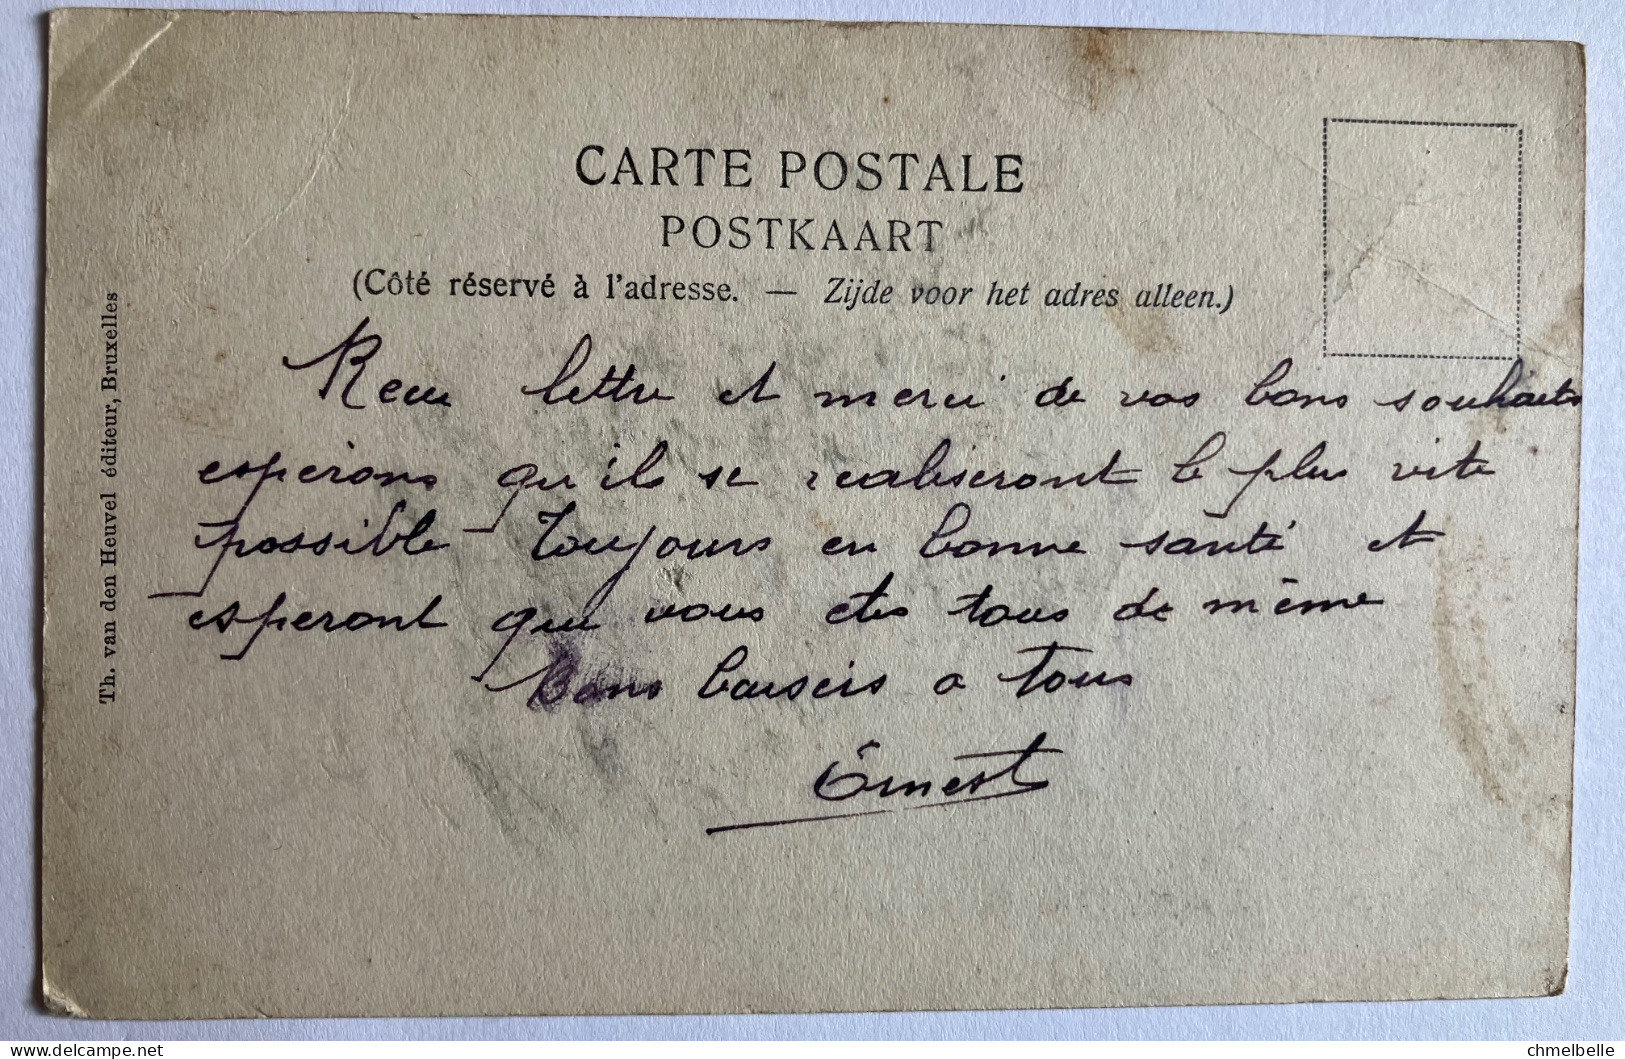 CARTE POSTALE
POSTKAART
(Côté réservé à l'adresse. — Zijde voor het adres alleen.)
Th. van den Heuvel éditeur, Bruxelles
Recu lettre et merci de vos bons souhaits
esperons qu'ils se realiseront le plus vite
possible Toujours en bonne santé et
esperont que vous etes tous de même
Bons baisers a tous
Ernest
www.delcampe.net
chmelbelle